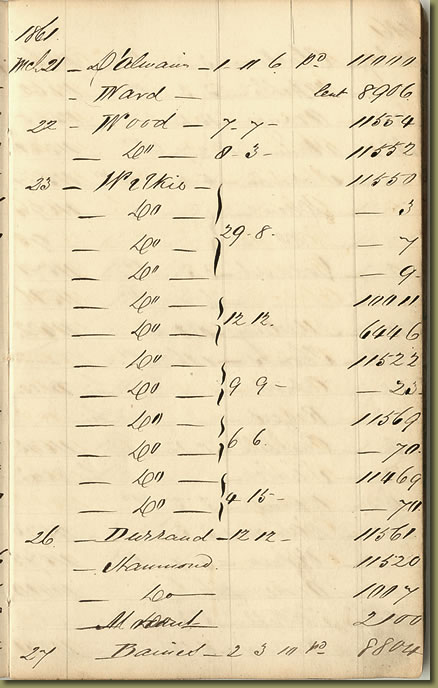 1861.
Mch 21 – D'Almaine – 1. 11 6. pd 11000
– Ward – lent 8906
22 – Wood – 7 – 7 – 11554
– Do – 8 – 3 – 11552
23 – Wilkie – 11550
– Do – – 3
– Do – 29. 8. – 7
– Do – – 9
– Do – 10011
– Do – 12 12. 6446
– Do – 11522
– Do – 9 9 – – 23
– Do – 11569
– Do – 6 6. – 70
– Do – 11469
– Do – 4 15 – – 70
26 – Durrand – 12 12 – 11561
– Hammond. 11520
– Do – 1007
2100
27 Baines – 2 3 10 pd 8804